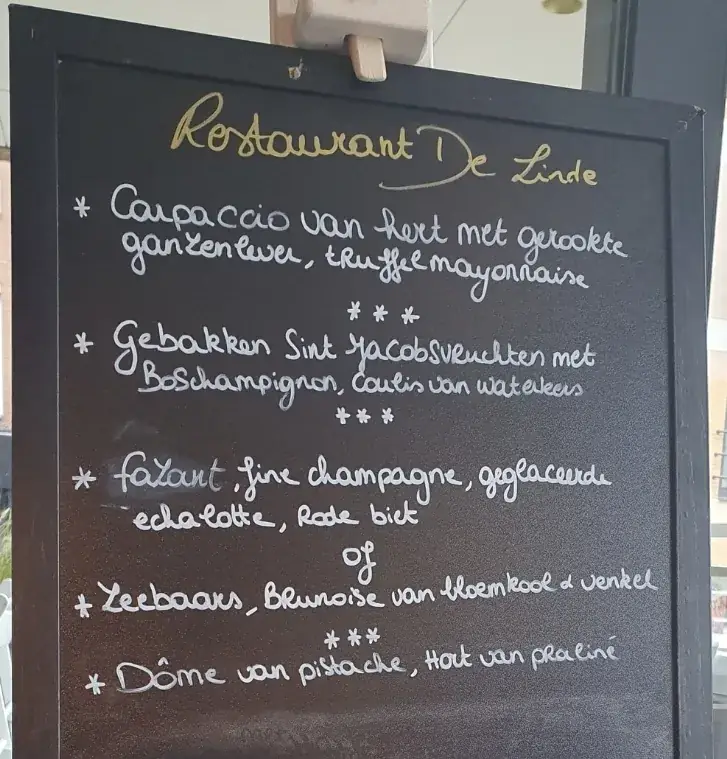 Restaurant De Linde
* Carpaccio van hert met gerookte
ganzenlever, truffelmayonnaise
***
* Gebakken Sint Jacobsvruchten met
Boschampignon, Coulis van waterkers
***
* fazant, fine champagne, geglaceerde
echalotte, Rode biet
of
* Zeebaars, Brunoise van bloemkool & venkel
***
* Dôme van pistache, Hart van praliné